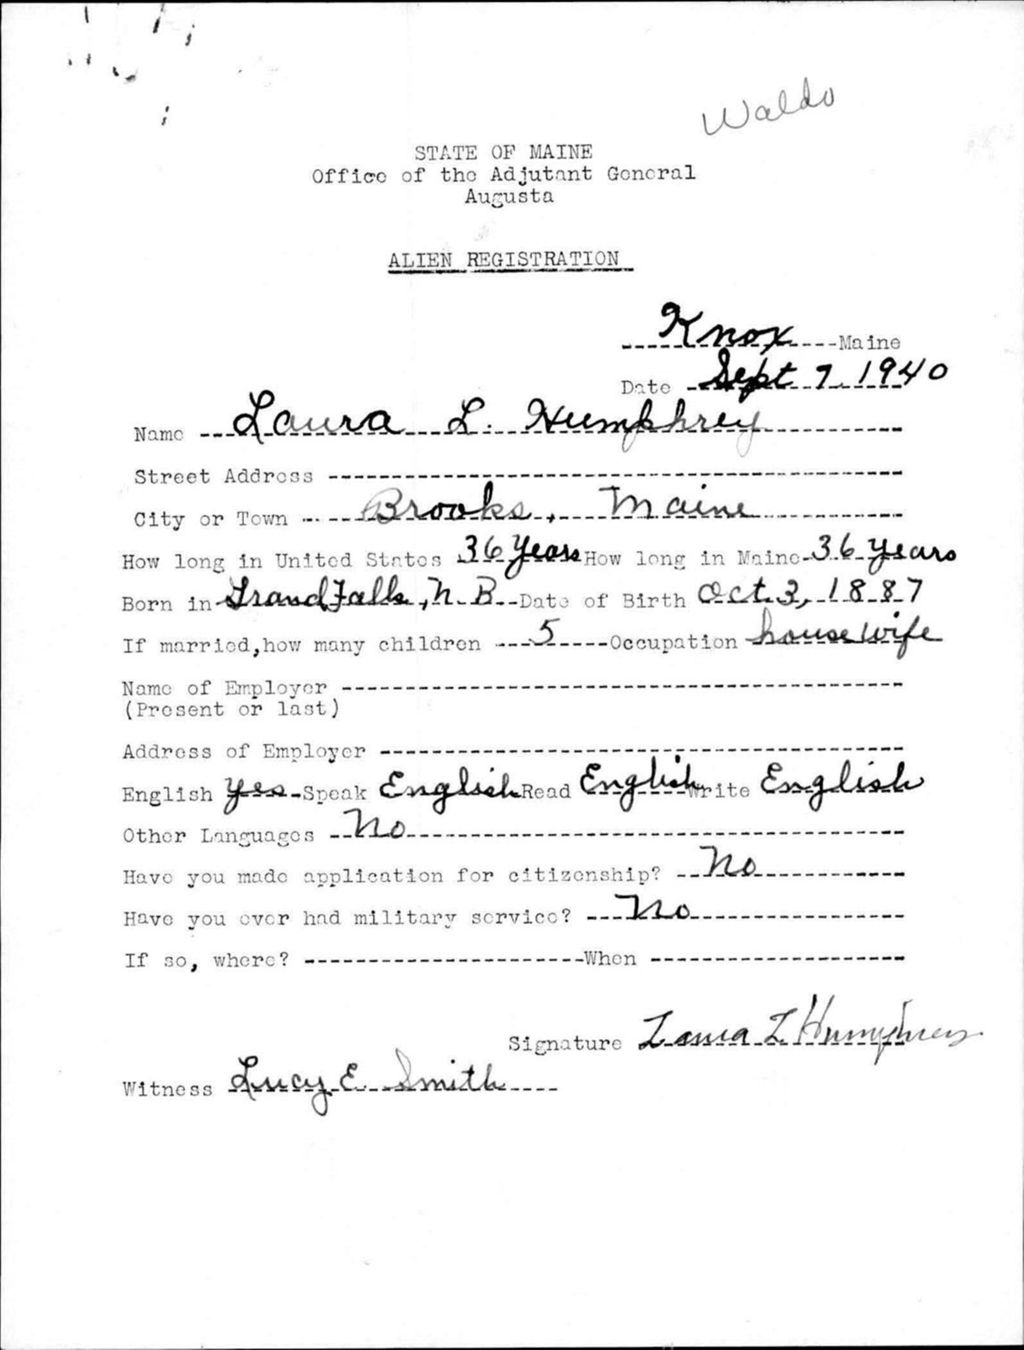 Waldo
STATE OF MAINE
Office of the Adjutant General
Augusta
ALIEN REGISTRATION
Knox Maine
Date Sept 7, 1940
Name Laura L. Humphrey
Street Address
City or Town Brooks, Maine
How long in United States 36 Years How long in Maine 36 years
Born in Grand Falls, N.B. Date of Birth Oct. 3, 1887
If married, how many children 5 Occupation housewife
Name of Employer
(Present or last)
Address of Employer
English Yes Speak English Read English Write English
Other Languages No
Have you made application for citizenship? No
Have you ever had military service? No
If so, where? When
Signature Laura L Humphrey
Witness Lucy E. Smith